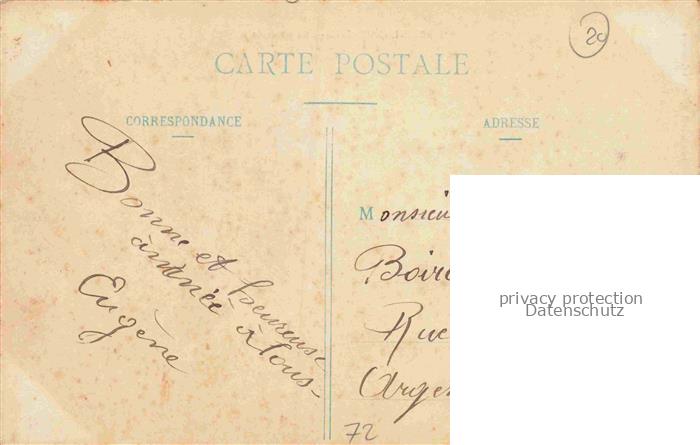 20
CARTE POSTALE
CORRESPONDANCE
ADRESSE
Bonne et heureuse
année à tous-
Eugène
Monsieu
Boir
Rue
Arge
privacy protection
Datenschutz
72